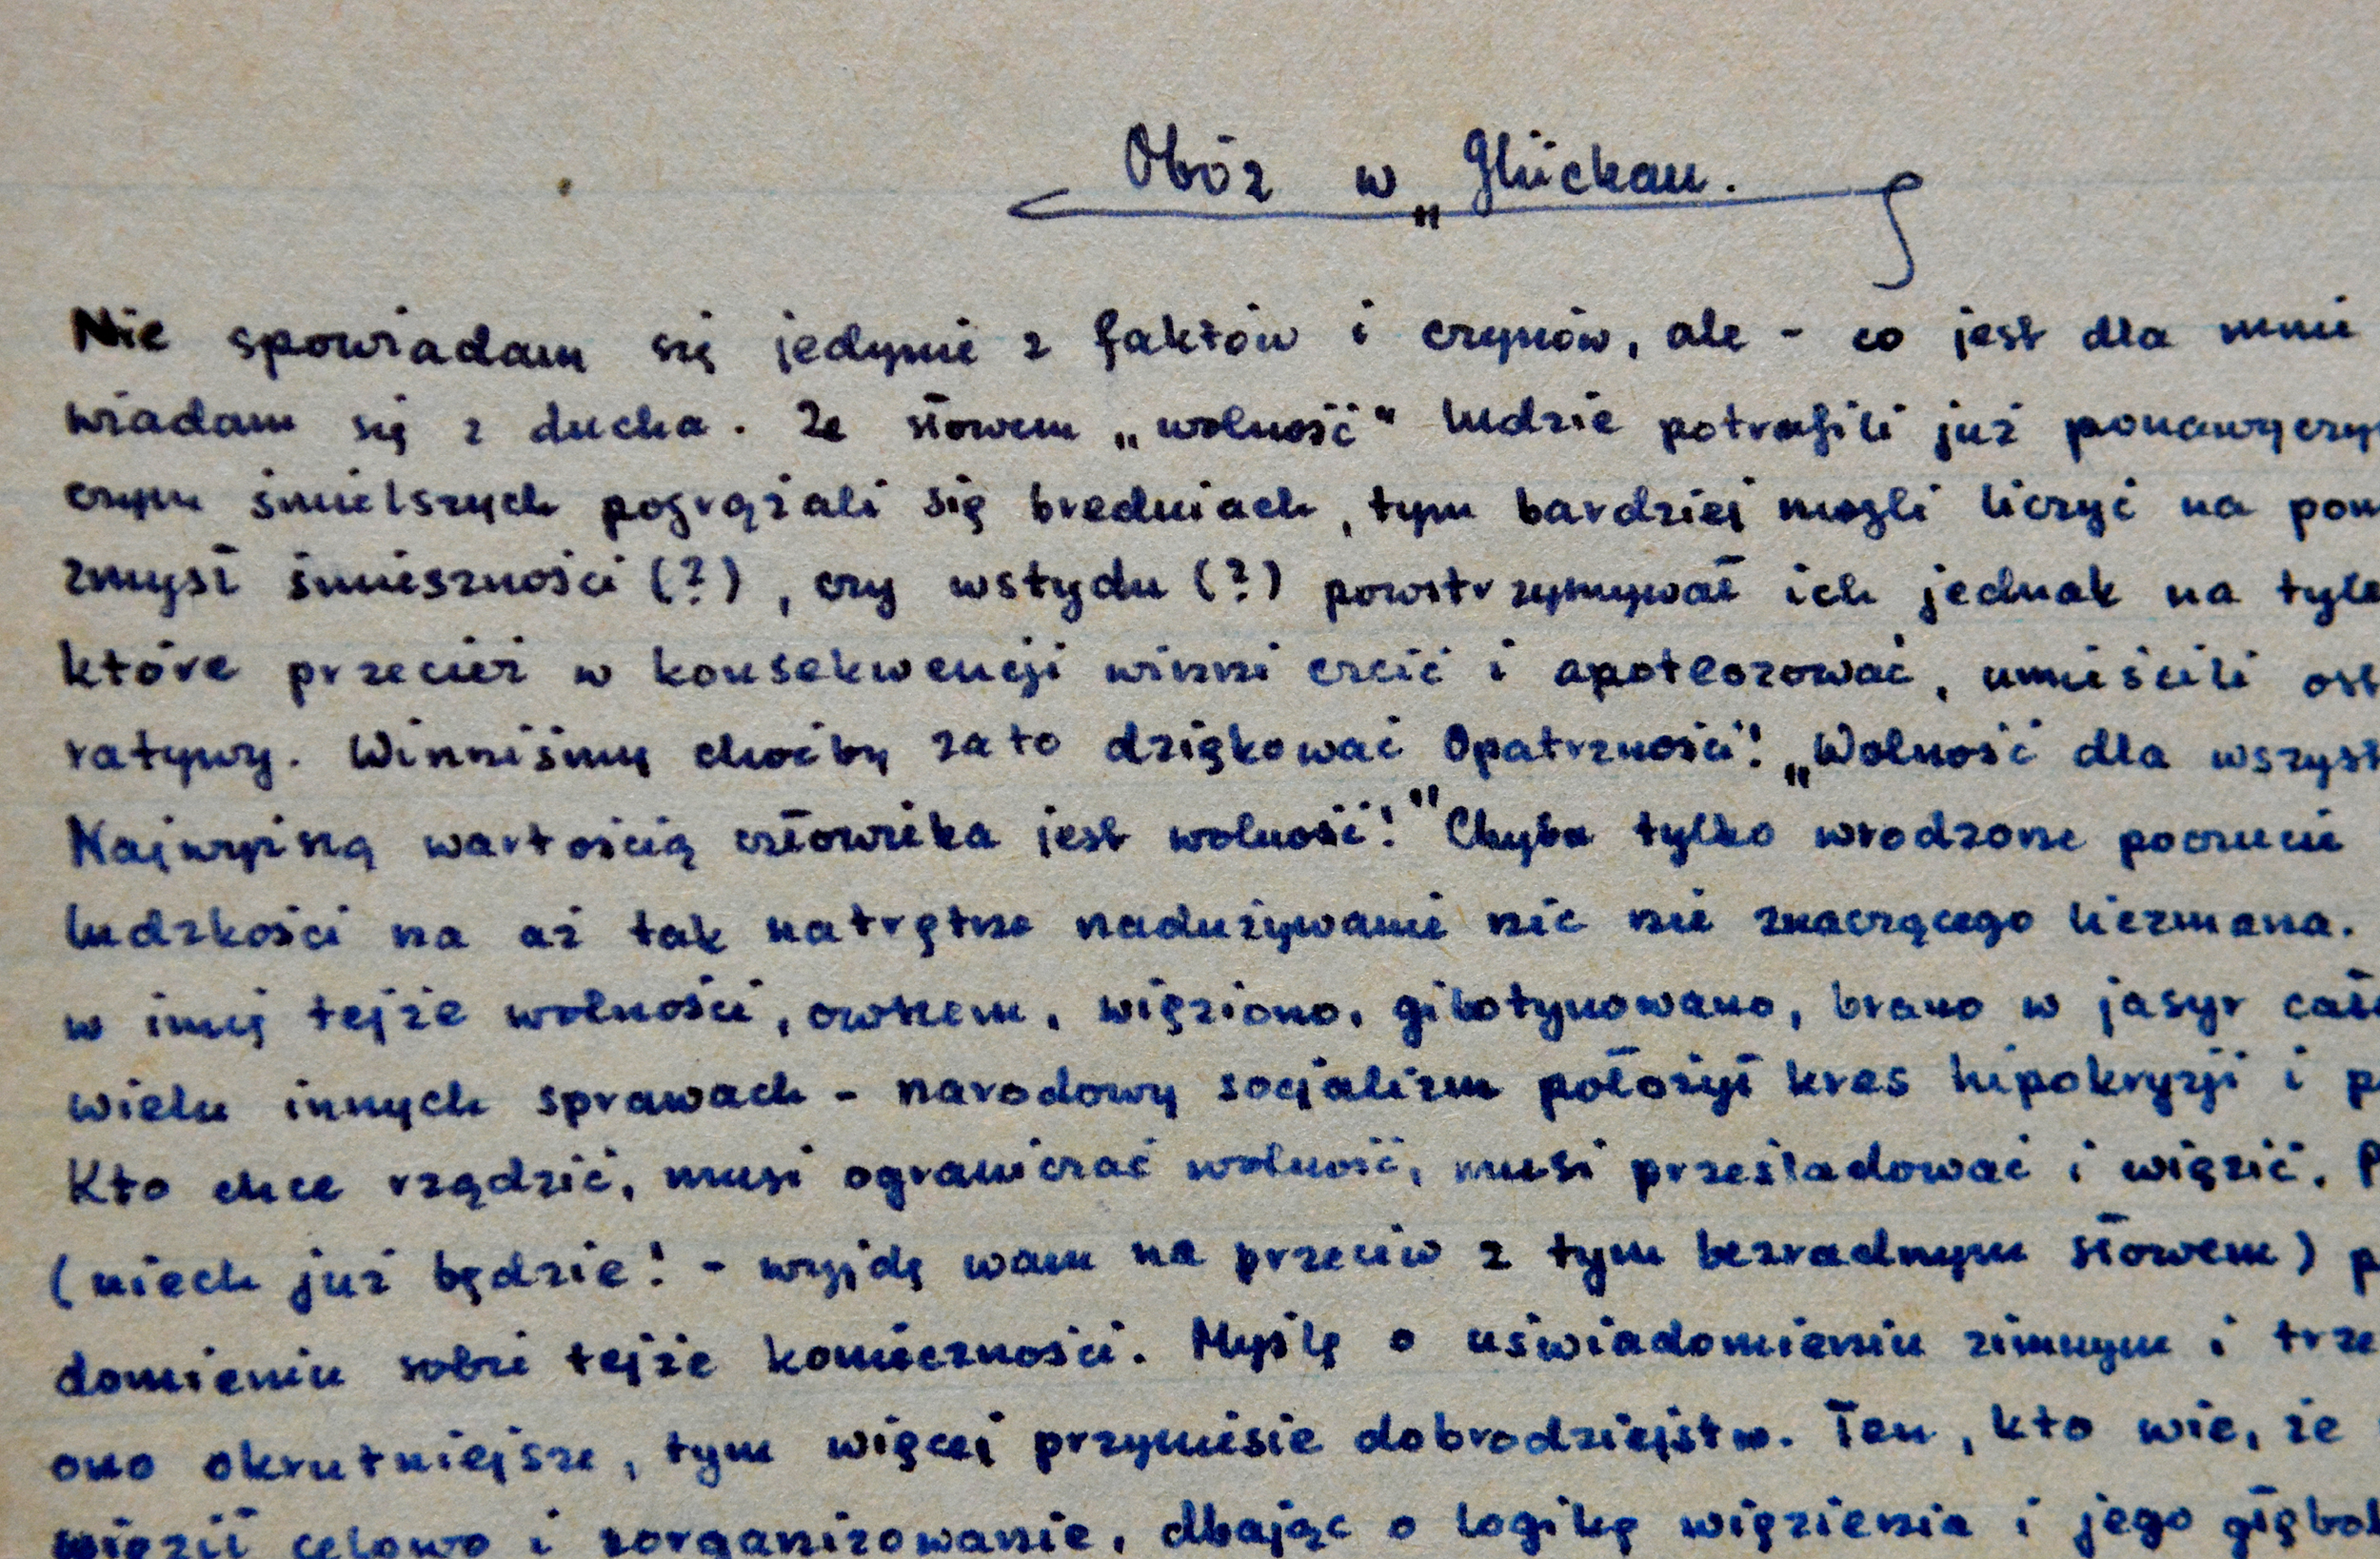 Obóz w „Glückau.
Nie spowiadam się jedynie z faktów i czynów, ale - co jest dla mnie
wiadam się z ducha. Ze słowem „wolność" ludzie potrafili już ponawyczy
czym śmielszych pogrążali się bredniach, tym bardziej mogli liczyć na pow
zmysł śmieszności (?), czy wstydu (?) powstrzymywał ich jednak na tyle
które przecież w konsekwencji winni czcić i apoteozować, umieścili ost
ratywy. Winniśmy choćby za to dziękować Opatrzności! „Wolność dla wszyst
Najwyższą wartością człowieka jest wolność!" Chyba tylko wrodzone poczucie
ludzkości na aż tak natrętne nadużywanie nic nie znaczącego liczmana.
w imię tejże wolności, owszem, więziono, gilotynowano, brano w jasyr cał
wielu innych sprawach - narodowy socjalizm położył kres hipokryzji i p
Kto chce rządzić, musi ograniczać wolność, musi prześladować i więzić. P
(niech już będzie! - wyjdę wam na przeciw z tym bezradnym słowem) p
domieniu sobie tejże konieczności. Myślę o uświadomieniu zimnym i trze
ono okrutniejsze, tym więcej przyniesie dobrodziejstw. Ten, kto wie, że
więził celowo i zorganizowanie, dbając o logikę więzienia i jego głębok